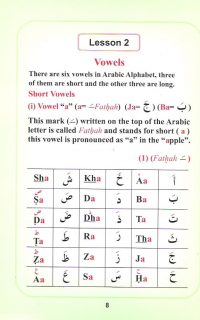 Lesson 2
Vowels
There are six vowels in Arabic Alphabet, three
of them are short and the other three are long.
Short Vowels
(i) Vowel "a" (a= ـَ Fatḥah) (Ja= جَ) (Ba= بَ)
This mark (ـَ) written on the top of the Arabic
letter is called Fatḥah and stands for short ( a )
this vowel is pronounced as "a" in the "apple".
(1) (Fatḥah ـَ )
Sha شَ Kha خَ Aa أَ
Ṣa صَ Da دَ Ba بَ
Ḍa ضَ Dha ذَ Ta تَ
Ṭa طَ Ra رَ Tha ثَ
Ẓa ظَ Za زَ Ja جَ
Aa عَ Sa سَ Ḥa حَ
8